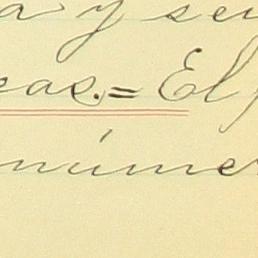 a y sei
eas.= El
númer